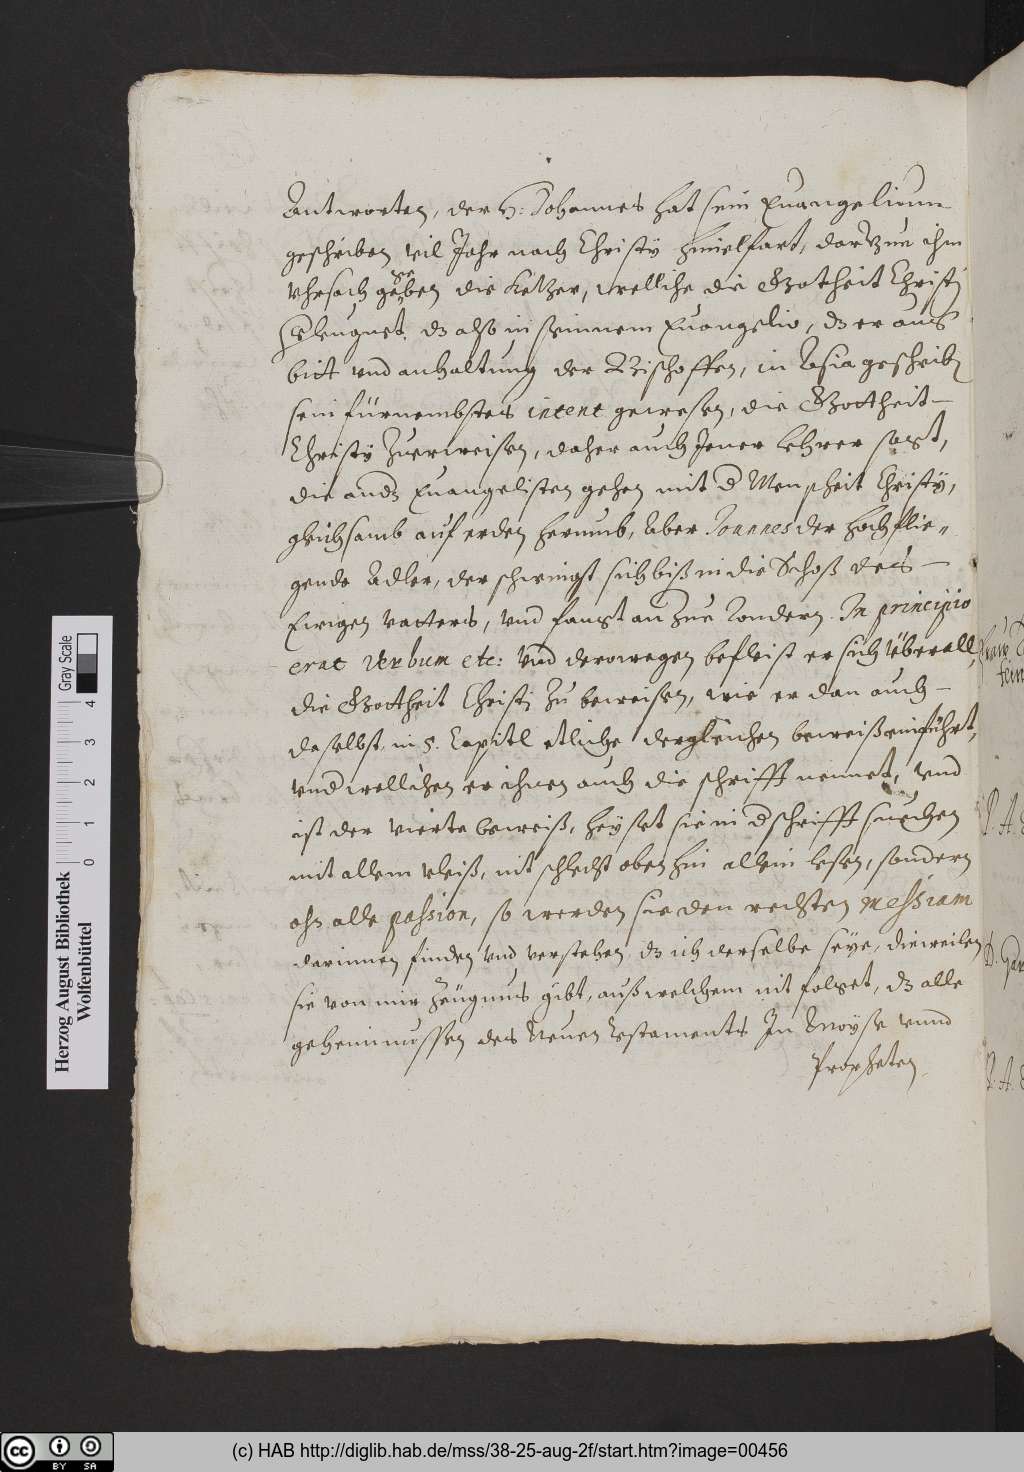 Antworten, der H: Johannes hat sein Euangelium
geschriben vil Jahr nach Christy himelfart, darzue ihm
Vhrsach gegeben die Ketzer, welliche die Gottheit Christi
gelaugnet. dz also in seinnem Euangelio, dz er aus
bitt vnd anhaltung der Bischoffen, in Asia geschriben
sein fürnembstes intent gewesen, die Gottheit
Christy Zuerweisen, daher auch Jener lehrer sagt,
die andern Euangelisten gehen mit der Menscheit Christy,
gleichsamb auf erden herumb, Aber Joannes der hochflie„
gende Adler, der schwingt sich biß in die Schoß des
Ewigen vatters, vnd fangt an Zue dondern. In principio
erat Verbum etc: Vnd derowegen befleist er sich überall,
die Gottheit Christi Zu beweisen, wie er dan auch
daselbst in 5. Capitl etliche dergleichen beweiß einführt,
vnd wellichen er ihnen auch die schrifft nennet, vnd
ist der vierte beweiß, heysset sie in d schrifft suechen
mit allem vleiß, nit schlecht oben hin allein lesen, sondern
ohn alle passion, so werden sie den rechten Messiam
darinnen finden vnd verstehen, dz ich derselbe seye, dieweilen
sie von mir Zeügnus gibt, auß welchem nit folget, dz alle
geheimnussen des Neuen Testaments In Moyse vnnd
Propheten
P. A.
P. A.
Herzog August Bibliothek
Wolfenbüttel
0 1 2 3 4
Gray Scale
cc BY SA
(c) HAB http://diglib.hab.de/mss/38-25-aug-2f/start.htm?image=00456